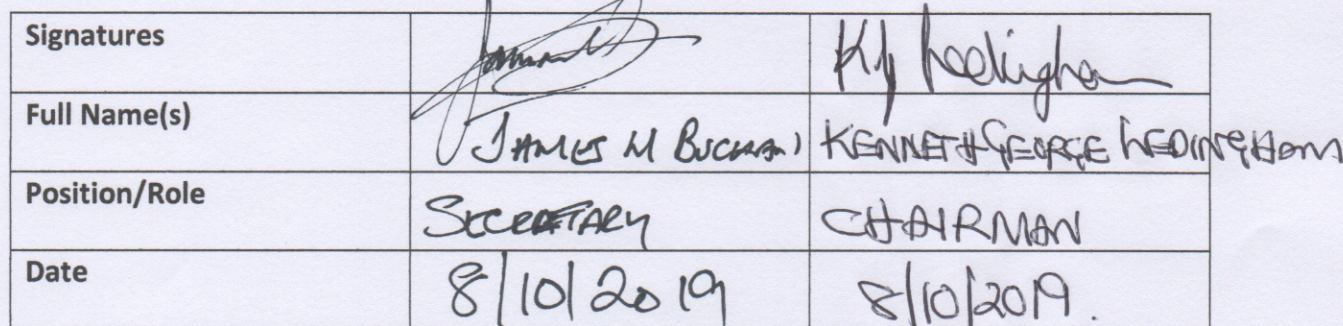 Signatures
Full Name(s) JAMES M BUCHAN KENNETH GEORGE LEDINGHAM
Position/Role SECRETARY CHAIRMAN
Date 8/10/2019 8/10/2019.